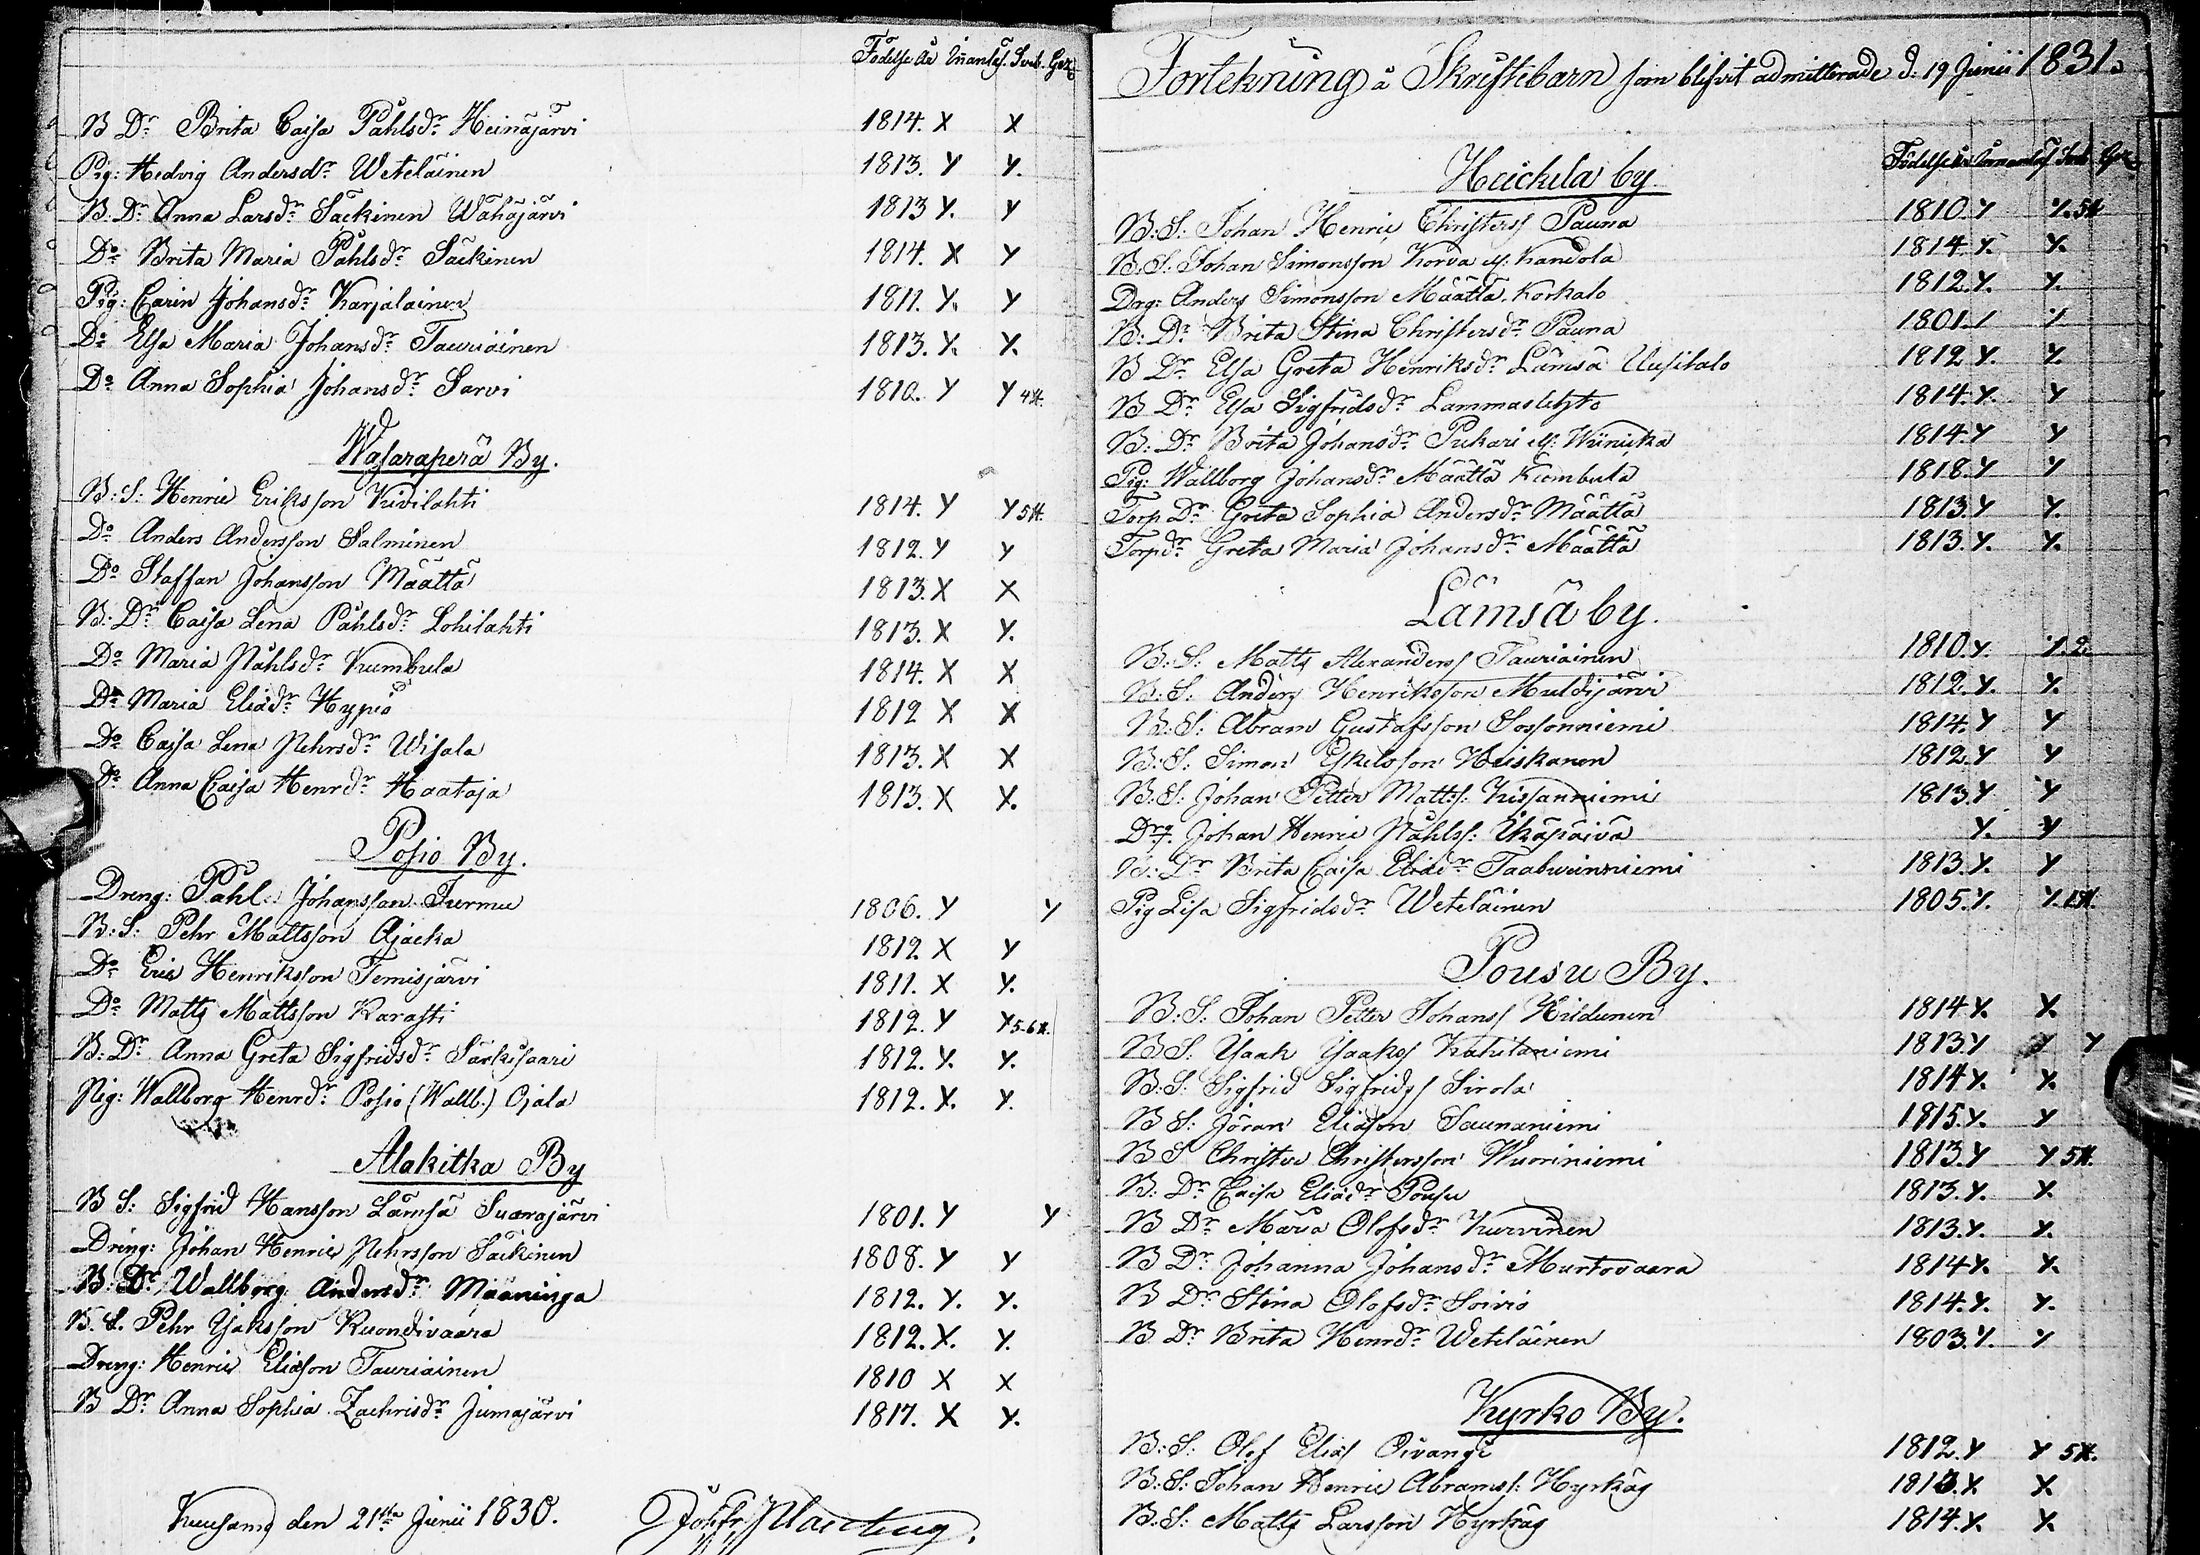 Födelse År Innanläs. Sveb. Gez
B Dr Brita Caisa Påhlsdr Heinäjärvi 1814. X X
Pig: Hedvig Andersdr Weteläinen 1813. Y Y.
B: Dr Anna Larsdr Säckinen Wähäjärvi 1813 Y. Y
Do Brita Maria Påhlsdr Säckinen 1814. X Y
Pig: Carin Johansdr Karjalainen 1811. Y. Y
Do Elsa Maria Johansdr Tauriainen 1813. Y. Y.
Do Anna Sophia Johansdr Sarvi 1810. Y Y 4 H.
Wasaraperä By.
B: S: Henric Eriksson Kivilahti 1814. Y Y 5 H.
Do Anders Andersson Salminen 1812. Y Y
Do Staffan Johansson Määttä 1813. X X
B: Dr Caisa Lena Påhlsdr Lohilahti 1813. X Y.
Do Maria Påhlsdr Kumbula 1814. X X
Do Maria Eliædr Hypiö 1812 X X
Do Caisa Lena Pehrsdr Wisala 1813. X X
Do Anna Caisa Henrdr Haataja 1813. X X.
Posio By.
Dreng: Påhl Johansson Turmu 1806. Y Y
B: S: Pehr Mattsson Ajacka 1812 X Y
Do Eric Henriksson Temisjärvi 1811. X Y.
Do Matts Mattsson Karasti 1812. Y Y 5-6 H.
B: Dr Anna Greta Sigfridsdr Särkisaari 1812. Y. Y.
Pig: Wallborg Henrdr Posio (Wallb.) Ojala 1812. Y. Y.
Alakitka By
B S: Sigfrid Hansson Lämsä Suænajärvi 1801. Y Y
Dreng: Johan Henric Pehrsson Säckinen 1808. Y Y
B: Dr Wallborg Andersdr Määninga 1812. Y. Y.
B. S. Pehr Isaksson Kuondivaara 1812. X. Y.
Dreng: Henric Eliæson Tauriainen 1810 X X
B Dr Anna Sophia Zachrisdr Jumajärvi 1817. X Y.
Kuusamo den 21sta Junii 1830.
Förtekning å Skriftebarn som blifvit admitterade d: 19 Junii 1831.
Födelse år Innanläs Sveb Gez
Heickila by
B: S: Johan Henric Christerss Pauna 1810. Y Y. 5 H
B. S. Johan Simonsson Korva el. Kandola 1814. Y. Y.
Drg: Anders Simonsson Määttä Korkalo 1812. Y. Y.
B: Dr Brita Stina Christersdr Pauna 1801. Y Y
B Dr Elsa Greta Henriksdr Lämsä Uusitalo 1812 Y. Y.
B Dr Elsa Sigfridsdr Lammaslehto 1814. Y. Y
B: Dr Brita Johansdr Pukari el. Wiinicka 1814. Y Y
Pig: Wallborg Johansdr Määttä Kumbula 1818. Y Y
Torp Dr Greta Sophia Andersdr Määttä 1813. Y Y.
Torpdr Greta Maria Johansdr Määttä 1813. Y. Y.
Lämsä by.
B: S: Matts Alexanderss Tauriainen 1810. Y. Y. 2.
B: S: Anders Henriksson Muldijärvi 1812. Y. Y.
B: S: Abram Gustafsson Sossonniemi 1814. Y Y
B: S: Simon Eskelsson Heiskanen 1812. Y Y
B: S: Johan Petter Mattss: Kissanniemi 1813. Y Y
Drg. Johan Henric Påhlss: Ikäpäivä Y. Y
B: Dr Brita Caisa Eliædr Taabrinniemi 1813. Y. Y
Pig Lisa Sigfridsdr Weteläinen 1805. Y. Y.
Pousu By.
B: S: Johan Petter Johanss Hildunen 1814 Y. Y.
B S: Isaak Isaakss Kahilaniemi 1813. Y Y Y
B: S: Sigfrid Sigfridss Sirola 1814 Y. Y.
B S: Jöran Eliæson Saunaniemi 1815. Y. Y
B S Christer Christersson Wuoriniemi 1813. Y Y 5 H.
B: Dr Caisa Eliædr Pousu 1813. Y. Y.
B Dr Maria Olofsdr Kurvinen 1813. Y. Y.
B Dr Johanna Johansdr Murtovaara 1814 Y. Y.
B Dr Stina Olofsdr Soivio 1814. Y. Y.
B Dr Brita Henrdr Weteläinen 1803. Y. Y
Kyrko By.
B: S: Olof Eliæs Oivangi 1812. Y Y 5 H.
B: S: Johan Henric Abramss: Hyrkäs 1813. Y. Y.
B: S: Matts Larsson Hyrkäs 1814. Y. Y.